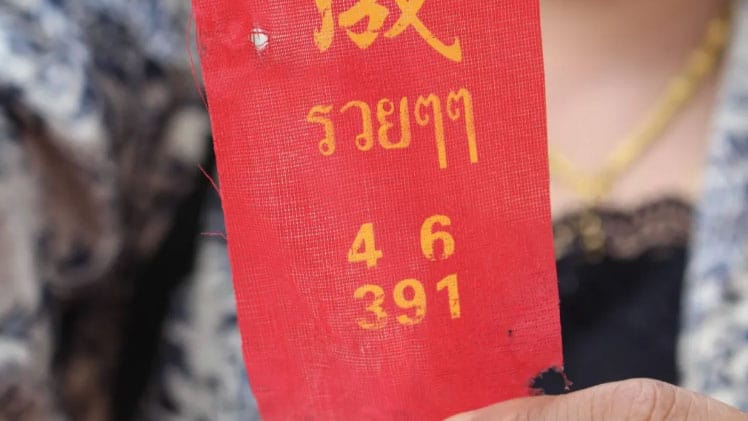 รวยๆๆ
4 6
391